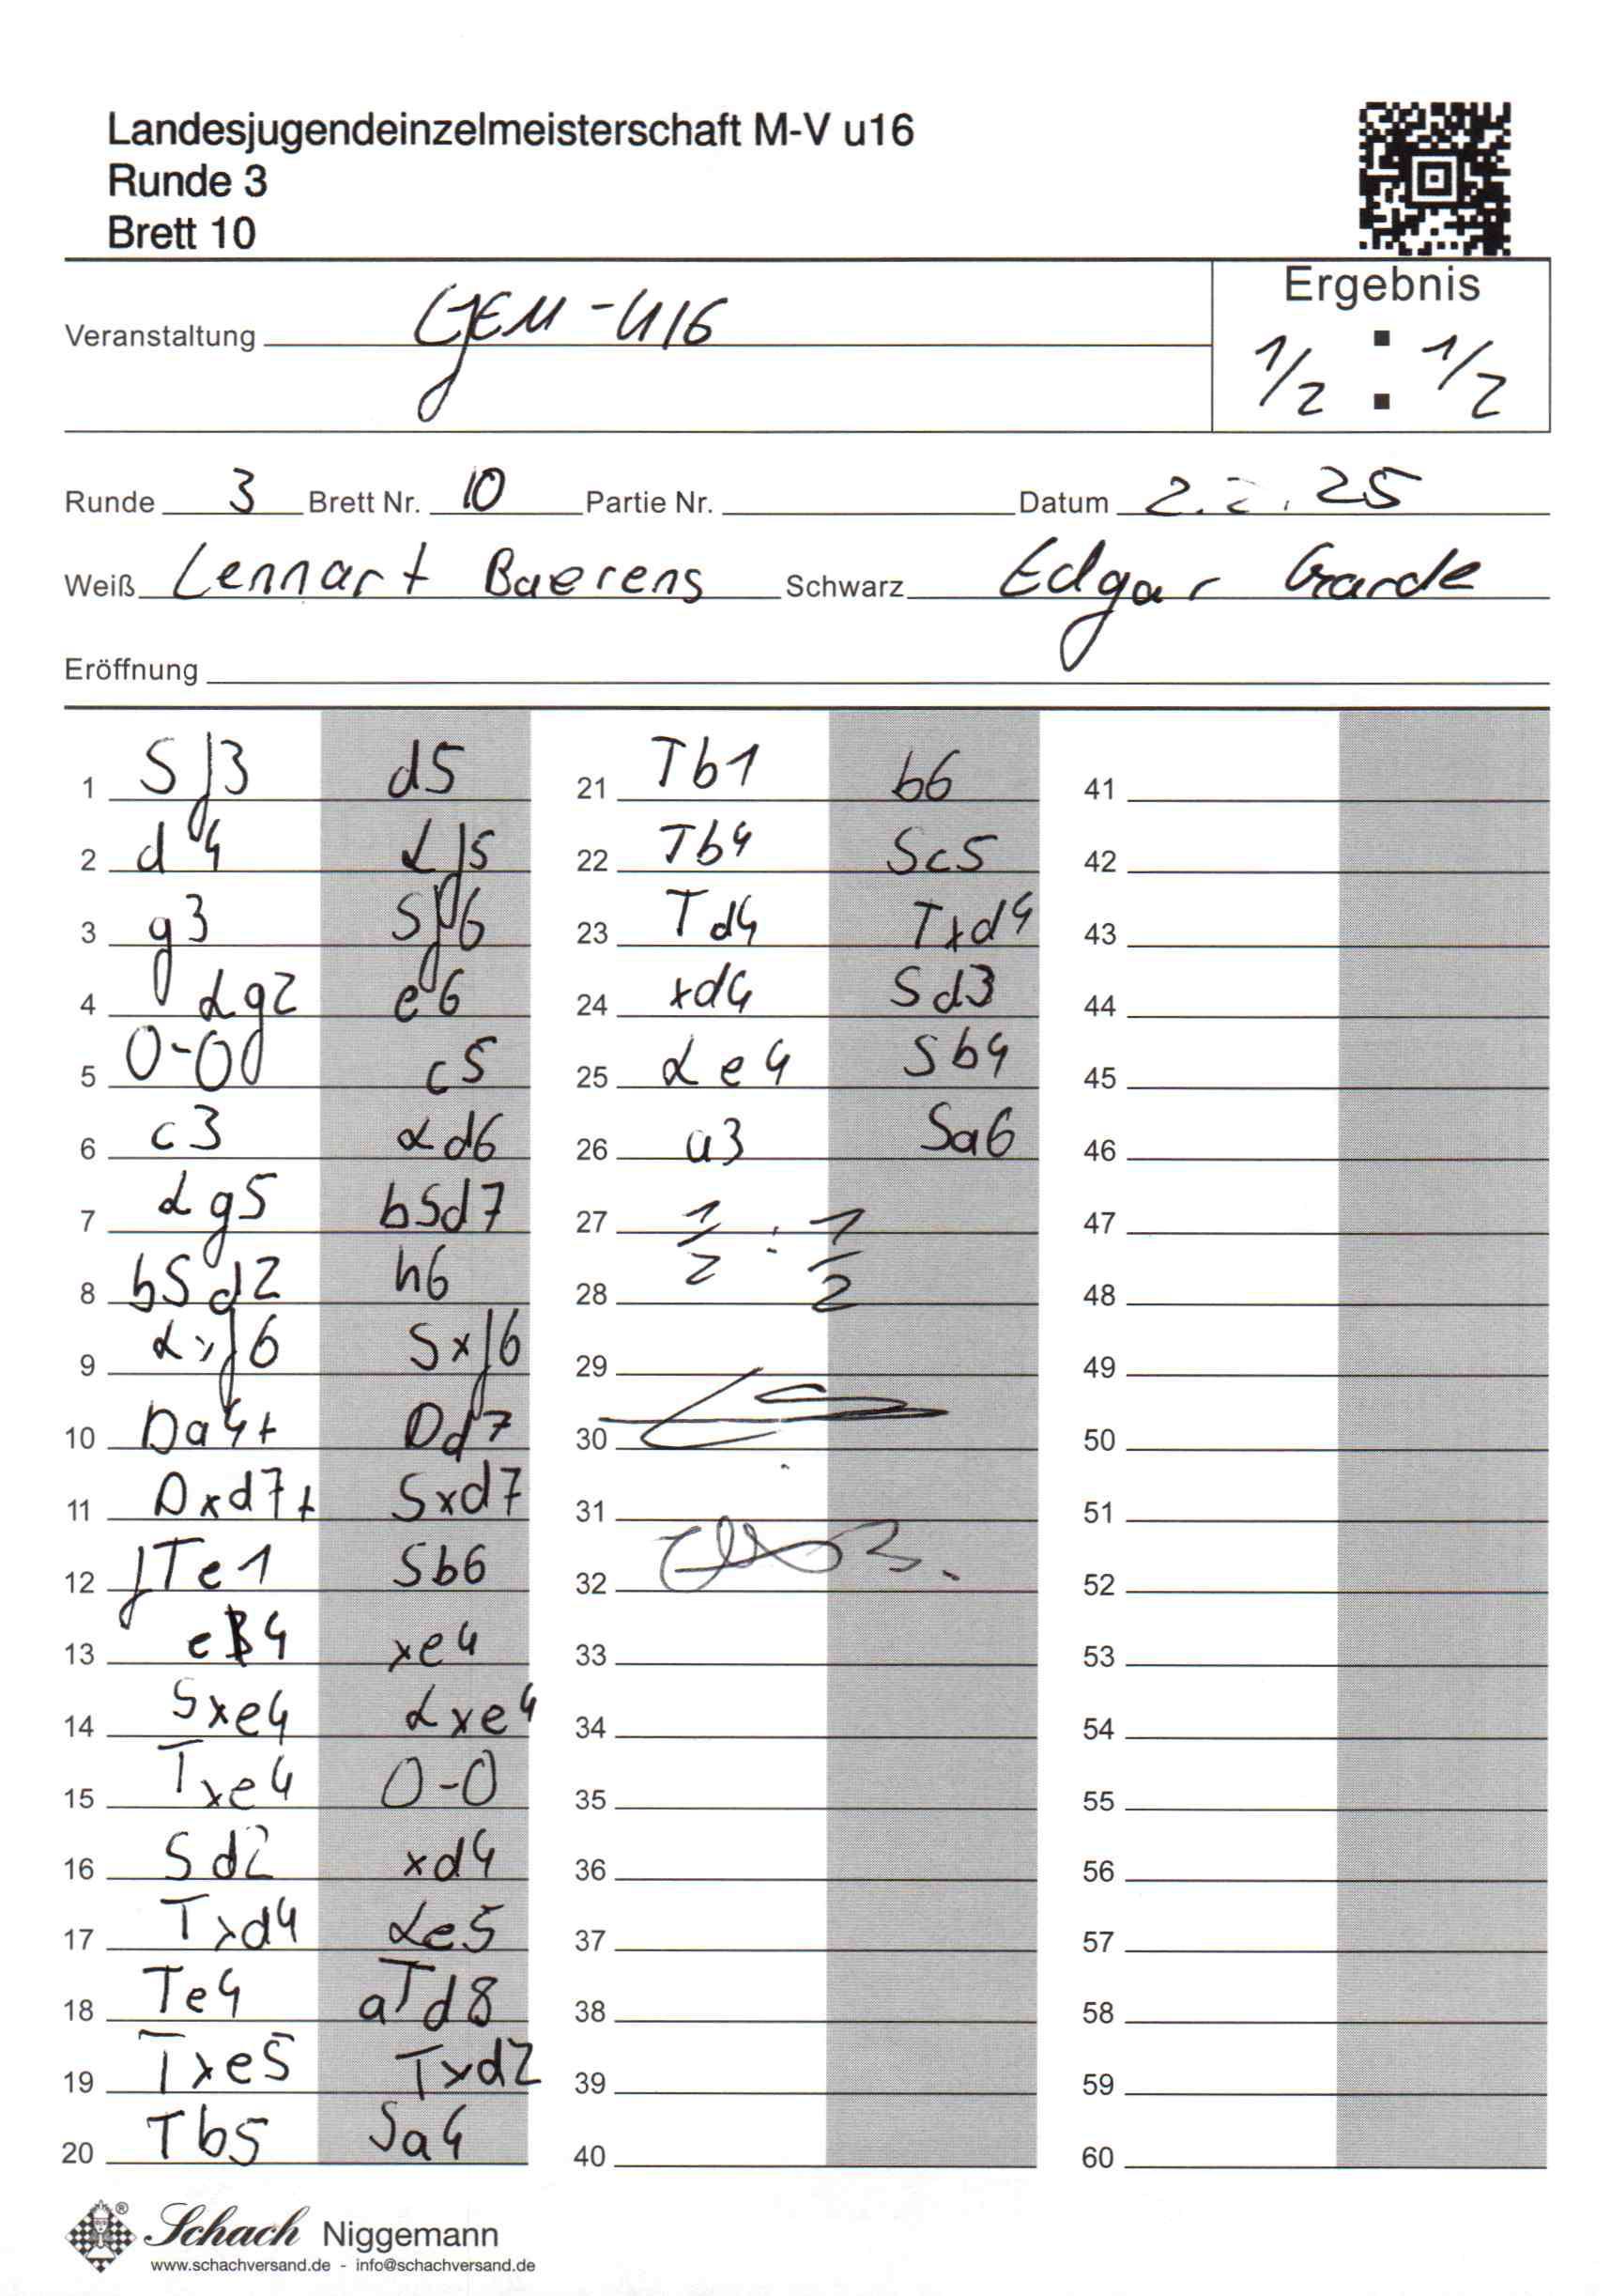 Landesjugendeinzelmeisterschaft M-V u16
Runde 3
Brett 10
Ergebnis
Veranstaltung LJEM-U16
1/2 : 1/2
Runde 3 Brett Nr. 10 Partie Nr. Datum 2.2.25
Weiß Lennart Baerens Schwarz Edgar Garde
Eröffnung
1 Sf3 d5
2 d4 Lf5
3 g3 Sf6
4 Lg2 e6
5 0-0 c5
6 c3 Ld6
7 Lg5 bSd7
8 bSd2 h6
9 Lxf6 Sxf6
10 Da4+ Dd7
11 Dxd7+ Sxd7
12 fTe1 Sb6
13 e4 xe4
14 Sxe4 Lxe4
15 Txe4 0-0
16 Sd2 xd4
17 Txd4 Le5
18 Te4 aTd8
19 Txe5 Txd2
20 Tb5 Sa4
21 Tb1 b6
22 Tb4 Sc5
23 Td4 Txd4
24 xd4 Sd3
25 Le4 Sb4
26 a3 Sa6
27 1/2 : 1/2
28
29
30
31
32
33
34
35
36
37
38
39
40
41
42
43
44
45
46
47
48
49
50
51
52
53
54
55
56
57
58
59
60
Schach Niggemann
www.schachversand.de - info@schachversand.de